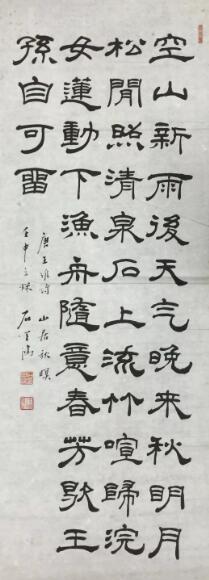 空山新雨後天气晚来秋明月
松閒照清泉石上流竹喧歸浣
女蓮動下漁舟隨意春芳歇王
孫自可留
唐王維詩 山居秋暝
壬申之秋 石